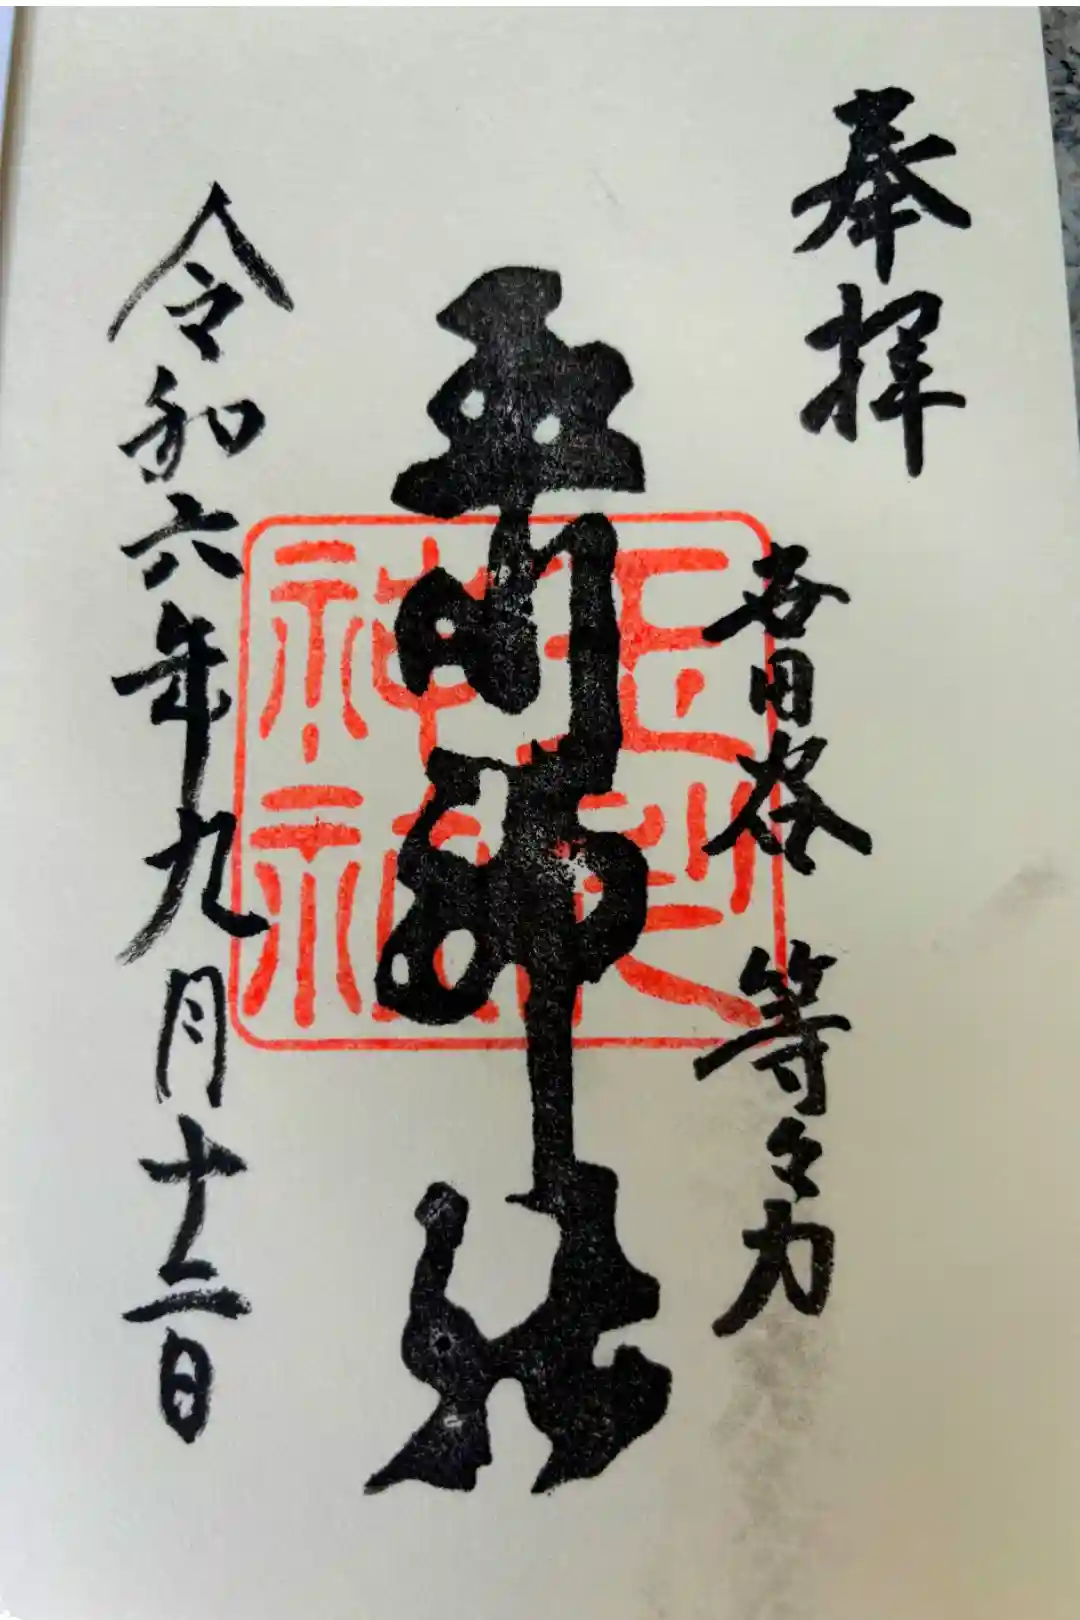 奉拝
世田谷 等々力
玉川神社
令和六年九月十二日